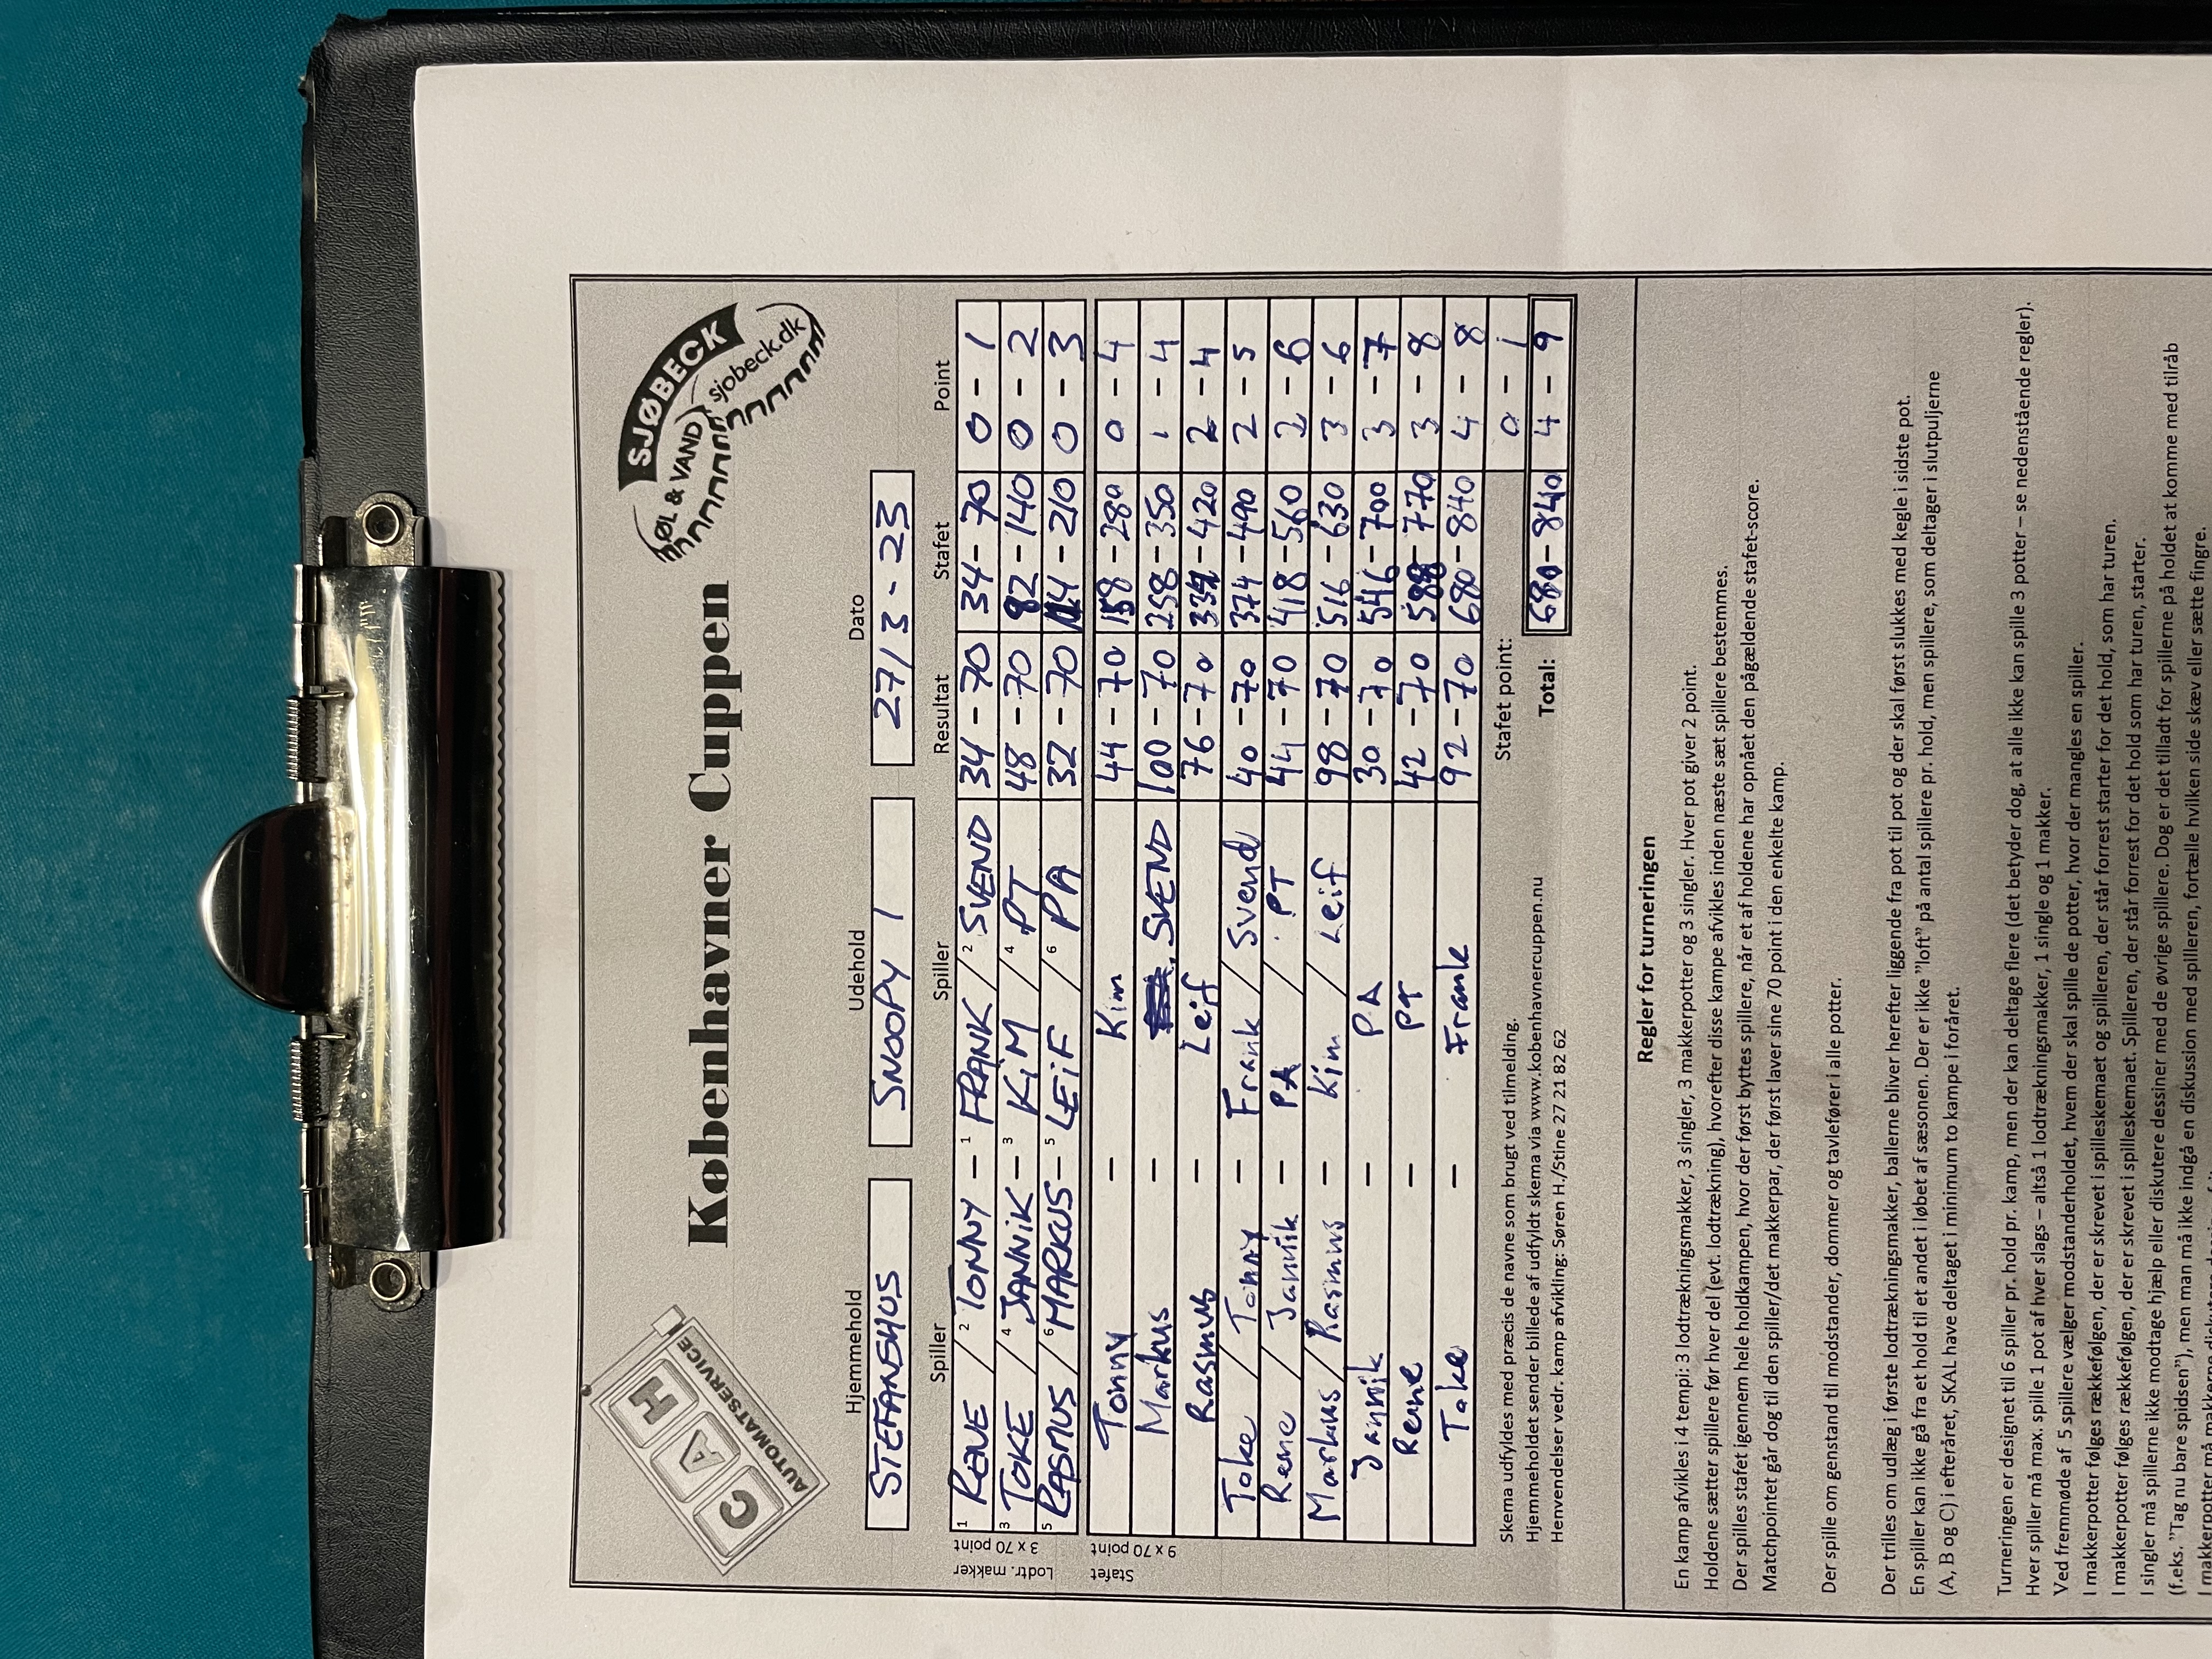 CAH
AUTOMATSERVICE
Københavner Cuppen
SJØBECK
ØL & VAND
sjobeck.dk
Hjemmehold Udehold Dato
STEFANSHUS SNOOPY 1 27/3-23
Spiller Spiller Resultat Stafet Point
Lodtr. makker
3 x 70 point
1 RENE / 2 TONNY - 1 FRANK / 2 SVEND 34-70 34-70 0-1
3 TOKE / 4 JANNIK - 3 KIM / 4 PT 48-70 82-140 0-2
5 RASMUS / 6 MARKUS - 5 LEIF / 6 PA 32-70 114-210 0-3
Stafet
9 x 70 point
Tonny - Kim 44-70 158-280 0-4
Markus - SVEND 100-70 258-350 1-4
Rasmus - Leif 76-70 334-420 2-4
Toke / Tonny - Frank / Svend 40-70 374-490 2-5
Rene / Jannik - PA / PT 44-70 418-560 2-6
Markus / Rasmus - Kim / Leif 98-70 516-630 3-6
Jannik - PA 30-70 546-700 3-7
Rene - PT 42-70 588-770 3-8
Toke - Frank 92-70 680-840 4-8
Stafet point: 0-1
Total: 680-840 4-9
Skema udfyldes med præcis de navne som brugt ved tilmelding.
Hjemmeholdet sender billede af udfyldt skema via www.kobenhavnercuppen.nu
Henvendelser vedr. kamp afvikling: Søren H./Stine 27 21 82 62
Regler for turneringen
En kamp afvikles i 4 tempi: 3 lodtrækningsmakker, 3 singler, 3 makkerpotter og 3 singler. Hver pot giver 2 point.
Holdene sætter spillere før hver del (evt. lodtrækning), hvorefter disse kampe afvikles inden næste sæt spillere bestemmes.
Der spilles stafet igennem hele holdkampen, hvor der først byttes spillere, når et af holdene har opnået den pågældende stafet-score.
Matchpointet går dog til den spiller/det makkerpar, der først laver sine 70 point i den enkelte kamp.
Der spille om genstand til modstander, dommer og tavlefører i alle potter.
Der trilles om udlæg i første lodtrækningsmakker, ballerne bliver herefter liggende fra pot til pot og der skal først slukkes med kegle i sidste pot.
En spiller kan ikke gå fra et hold til et andet i løbet af sæsonen. Der er ikke "loft" på antal spillere pr. hold, men spillere, som deltager i slutpuljerne
(A, B og C) i efteråret, SKAL have deltaget i minimum to kampe i foråret.
Turneringen er designet til 6 spiller pr. hold pr. kamp, men der kan deltage flere (det betyder dog, at alle ikke kan spille 3 potter – se nedenstående regler).
Hver spiller må max. spille 1 pot af hver slags – altså 1 lodtrækningsmakker, 1 single og 1 makker.
Ved fremmøde af 5 spillere vælger modstanderholdet, hvem der skal spille de potter, hvor der mangles en spiller.
I makkerpotter følges rækkefølgen, der er skrevet i spilleskemaet og spilleren, der står forrest starter for det hold, som har turen.
I makkerpotter følges rækkefølgen, der er skrevet i spilleskemaet. Spilleren, der står forrest for det hold som har turen, starter.
I singler må spillerne ikke modtage hjælp eller diskutere dessiner med de øvrige spillere. Dog er det tilladt for spillerne på holdet at komme med tilråb
(f.eks. "Tag nu bare spidsen"), men man må ikke indgå en diskussion med spilleren, fortælle hvilken side skæv eller sætte fingre.